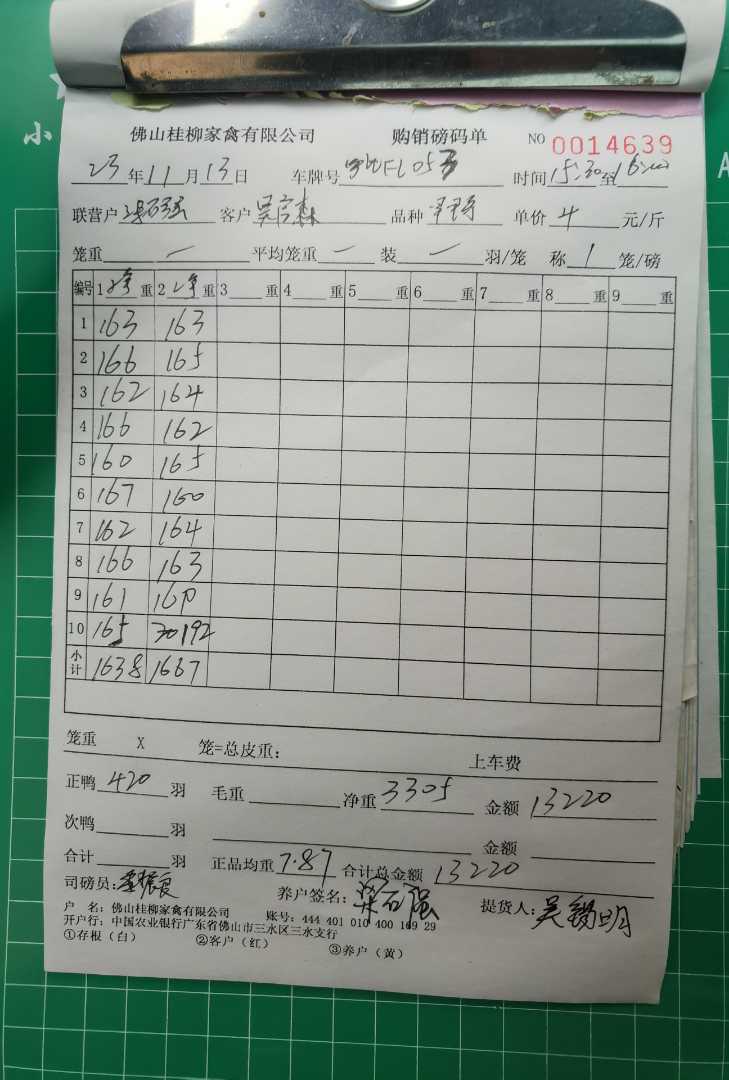 小
佛山桂柳家禽有限公司 购销磅码单 NO 0014639
23年11月13日 车牌号 时间15:30至16:00
联营户 客户 品种 单价 4 元/斤
笼重 一 平均笼重 一 装 一 羽/笼 称 1 笼/磅
编号 1 重 2 重 3 重 4 重 5 重 6 重 7 重 8 重 9 重
1 163 163
2 166 165
3 162 164
4 166 162
5 160 165
6 167 160
7 162 164
8 166 163
9 161 160
10 165 192
小计 1638 1667
笼重 X 笼=总皮重: 上车费
正鸭 420 羽 毛重 净重 3305 金额 13220
次鸭 羽 金额
合计 羽 正品均重 7.87 合计总金额 13220
司磅员: 养户签名: 梁石强 提货人: 吴锡明
户 名: 佛山桂柳家禽有限公司 账号: 444 401 010 400 169 29
开户行: 中国农业银行广东省佛山市三水区三水支行
①存根(白) ②客户(红) ③养户(黄)